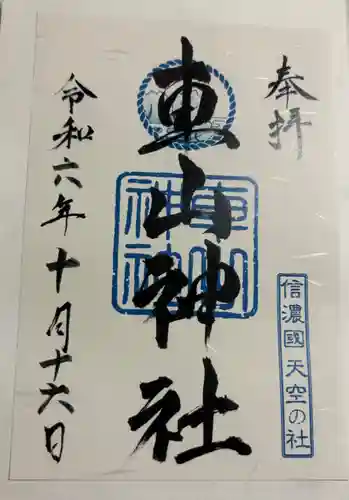 奉拝
信濃國 天空の社
車山神社
車山神社
令和六年十月十六日